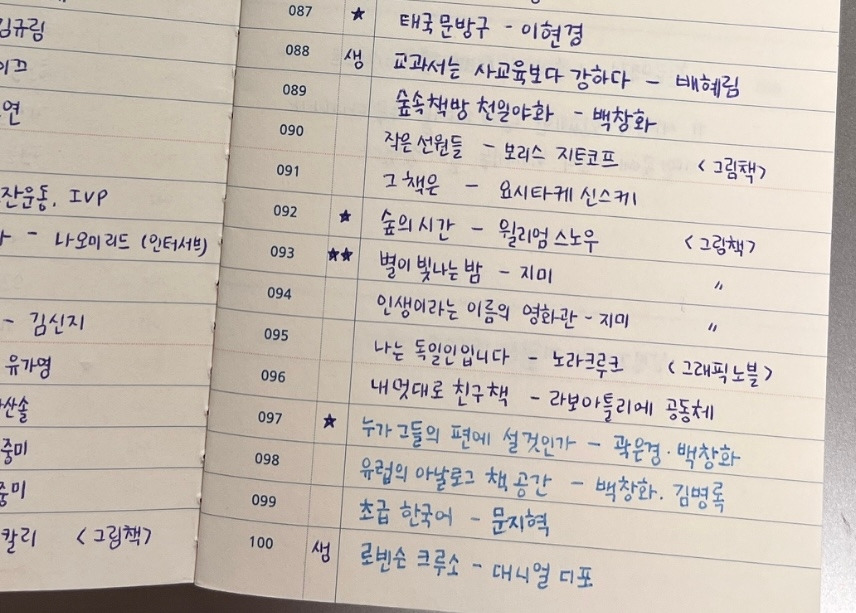 김규림
이끄
연
잔운동, IVP
- 나오미리드 (인터서브)
- 김신지
유가영
산솔
중미
중미
칼리 <그림책>
087 ★ 태국문방구 - 이현경
088 생 교과서는 사교육보다 강하다 - 배혜림
089 숲속책방 천일야화 - 백창화
090 작은 선원들 - 보리스 지트코프 <그림책>
091 그 책은 - 요시타케 신스케
092 ★ 숲의 시간 - 윌리엄 스노우 <그림책>
093 ★★ 별이 빛나는 밤 - 지미 〃
094 인생이라는 이름의 영화관 - 지미 〃
095 나는 독일인입니다 - 노라크루크 <그래픽노블>
096 내 멋대로 친구책 - 라보아틀리에 공동체
097 ★ 누가 그들의 편에 설 것인가 - 곽은경·백창화
098 유럽의 아날로그 책 공간 - 백창화. 김병록
099 초급 한국어 - 문지혁
100 샘 로빈슨 크루소 - 대니얼 디포